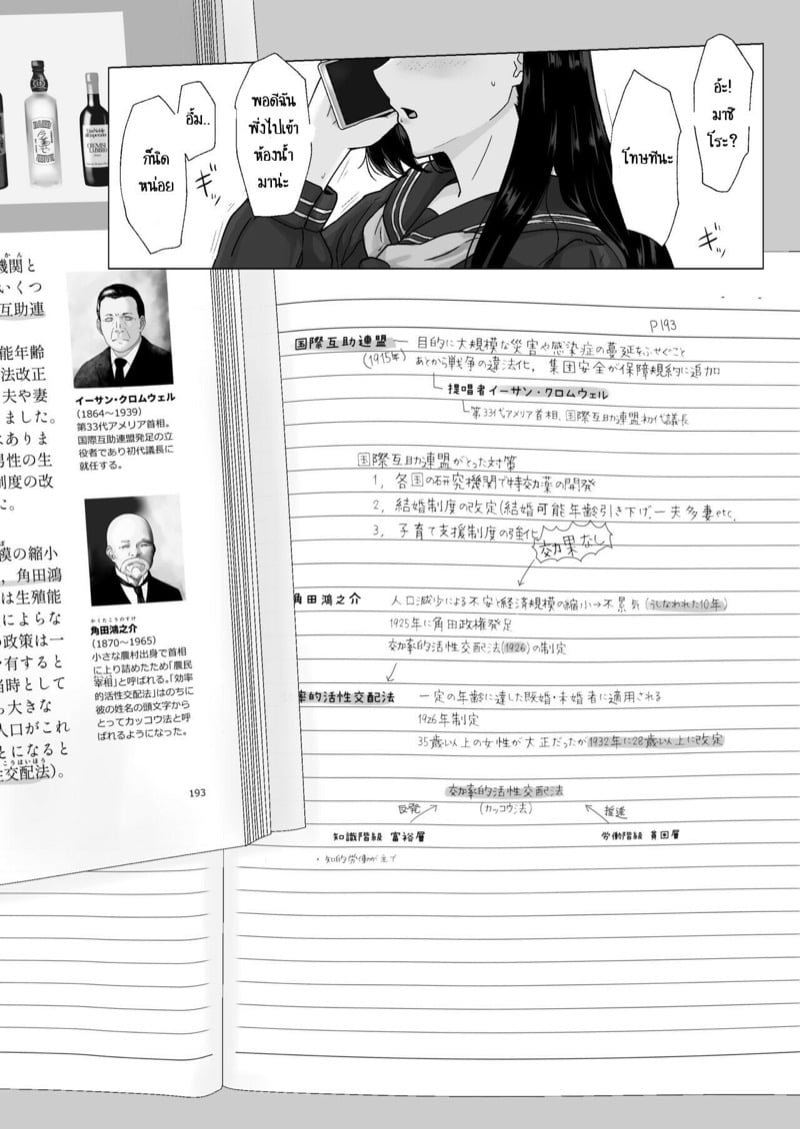 อ๊ะ!
มาซิ
โระ?
โทษทีนะ
พอดีฉัน
พึ่งไปเข้า
ห้องน้ำ
มาน่ะ
อื้ม..
ก็นิด
หน่อย
ギッ
ギッ
機関と
いくつ
互助連
能年齢
法改正
夫や妻
ました。
はありま
男性の生
制度の改
た。
模の縮小
、角田鴻
は生殖能
によらな
の政策は一
有すると
当時として
も大きな
人口がこれ
とになると
性交配法)。
イーサン・クロムウェル
(1864〜1939)
第33代アメリア首相。
国際互助連盟発足の立
役者であり初代議長に
就任する。
かくたこうのすけ
角田鴻之介
(1870〜1965)
小さな農村出身で首相
に上り詰めたため「農民
宰相」と呼ばれる。「効率
的活性交配法」はのちに
彼の姓名の頭文字から
とってカッコウ法と呼
ばれるようになった。
193
P193
国際互助連盟 — 目的に大規模な災害や感染症の蔓延をふせぐこと
(1915年) あとから戦争の違法化、集団安全が保障規約に追加
提唱者イーサン・クロムウェル
第33代アメリア首相、国際互助連盟初代議長
国際互助連盟がとった対策
1, 各国の研究機関で特効薬の開発
2, 結婚制度の改定(結婚可能年齢引き下げ、一夫多妻etc,
3, 子育て支援制度の強化
効果なし
角田鴻之介 人口減少による不安と経済規模の縮小→不景気(うしなわれた10年)
1925年に角田政権発足
効率的活性交配法(1926)の制定
率的活性交配法 一定の年齢に達した既婚・未婚者に適用される
1926年制定
35歳以上の女性が大正だったが1932年に28歳以上に改定
効率的活性交配法
(カッコウ法)
反発
推進
知識階級 富裕層
労働階級 貧困層
・知的労働がえて